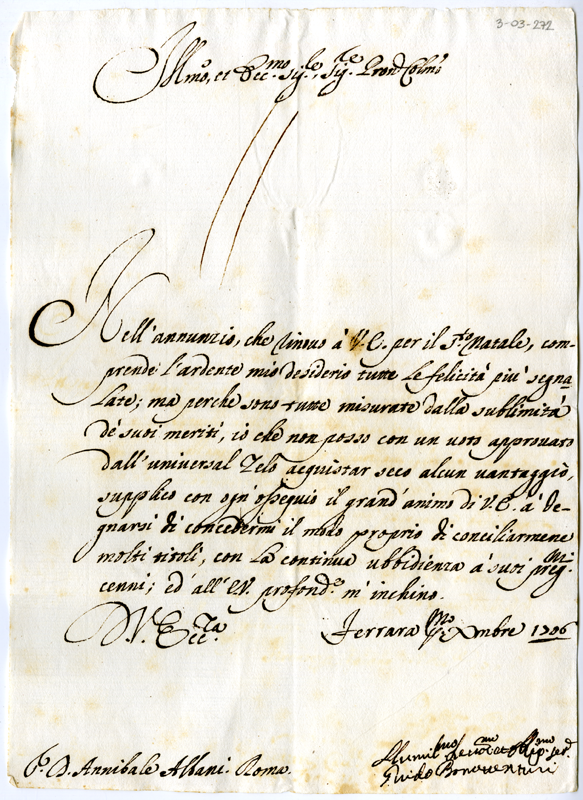 3-03-272
Ill.mo, et Ecc.mo Sig.re, Sig.re Pron Colmo
Nell'annunzio, che rinovo à V.E. per il S.to Natale, com-
prende l'ardente mio desiderio tutte le felicità più segna
late; ma perche sono tutte misurate dalla sublimità
de suoi meriti, io che non posso con un voto approvato
dall'universal Zelo acquistar seco alcun vantaggio,
supplico con ogn'ossequio il grand'animo di V.E. à de-
gnarsi di concedermi il modo proprio di conciliarmene
molti titoli, con la continua ubbidienza a' suoi preg.mi
cenni; ed all'E.V. profond.e m'inchino.
D.V. Ecc.za
Ferrara Xmbre 1706
P. D. Annibale Albani. Roma.
Humil.mo
Guido Bonaventuri